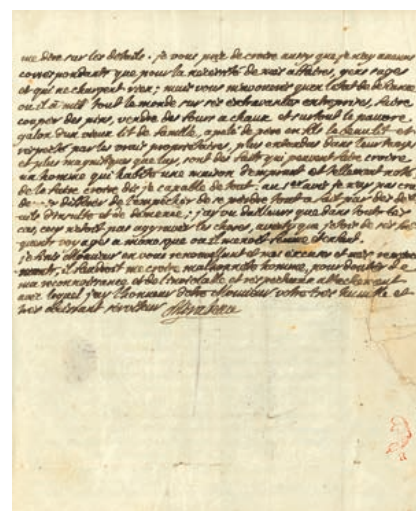 me dire sur les details. je vous prie de croire aussy que je n'ay aucuns
correspondants que pour la necessité de mes affaires, gens sages
et qui ne chargent rien; mais vous m'avouerés qu'en l'etat de
ou il a mis tout le monde sur ses extravantes entreprises, faire
couper des pins, vendre des fours a chaux et surtout le pauvre
galon d'un vieux lit de famille, apelé de pere en fils le beau lit et
respecté par les vrais proprietaires, plus entendus dans leur temps
et plus magnifiques que luy, sont des faits qui peuvent faire croire
un homme qui habite une maison d'emprunt et tellement noté
de la faire croire dis je capable de tout. au restant je n'ay pas cru
de differer de l'empecher de se perdre tout a fait par des
d'insulte et de demence; j'ay vu d'ailleurs que dans tout les
cas, cecy n'etoit pas aggraver les choses, autant que
voyages a monaque ou il menoit
je finis Monsieur en vous renouvellant et mes excuses et mes
il faudroit me croire malhonnete homme, pour douter de
ma reconnoissance et de l'inviolable et respectueux attachement
avec lequel j'ay l'honneur d'etre Monsieur votre tres humble et
tres obeissant serviteur Mirabeau